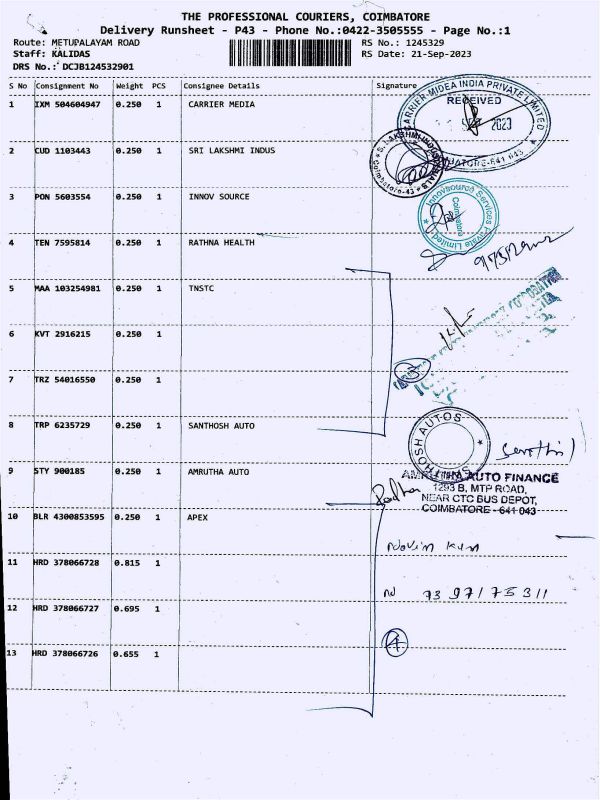 THE PROFESSIONAL COURIERS, COIMBATORE
Delivery Runsheet - P43 - Phone No.:0422-3505555 - Page No.:1
Route: METUPALAYAM ROAD RS No.: 1245329
Staff: KALIDAS RS Date: 21-Sep-2023
DRS No.: DCJB124532901
S No Consignment No Weight PCS Consignee Details Signature
1 IXM 504604947 0.250 1 CARRIER MEDIA
CARRIER-MIDEA INDIA PRIVATE LIMITED
RECEIVED
2023
2 CUD 1103443 0.250 1 SRI LAKSHMI INDUS
3 PON 5603554 0.250 1 INNOV SOURCE
Innovsource Services Private Limited
Coimbatore
4 TEN 7595814 0.250 1 RATHNA HEALTH
5 MAA 103254981 0.250 1 TNSTC
6 KVT 2916215 0.250 1
7 TRZ 54016550 0.250 1
3
8 TRP 6235729 0.250 1 SANTHOSH AUTO
SANTHOSH AUTOS
9 STY 900185 0.250 1 AMRUTHA AUTO
AMRUTHA AUTO FINANCE
1293 B, MTP ROAD,
NEAR CTC BUS DEPOT,
COIMBATORE - 641 043
10 BLR 4300853595 0.250 1 APEX
11 HRD 378066728 0.815 1
12 HRD 378066727 0.695 1
13 HRD 378066726 0.655 1
4